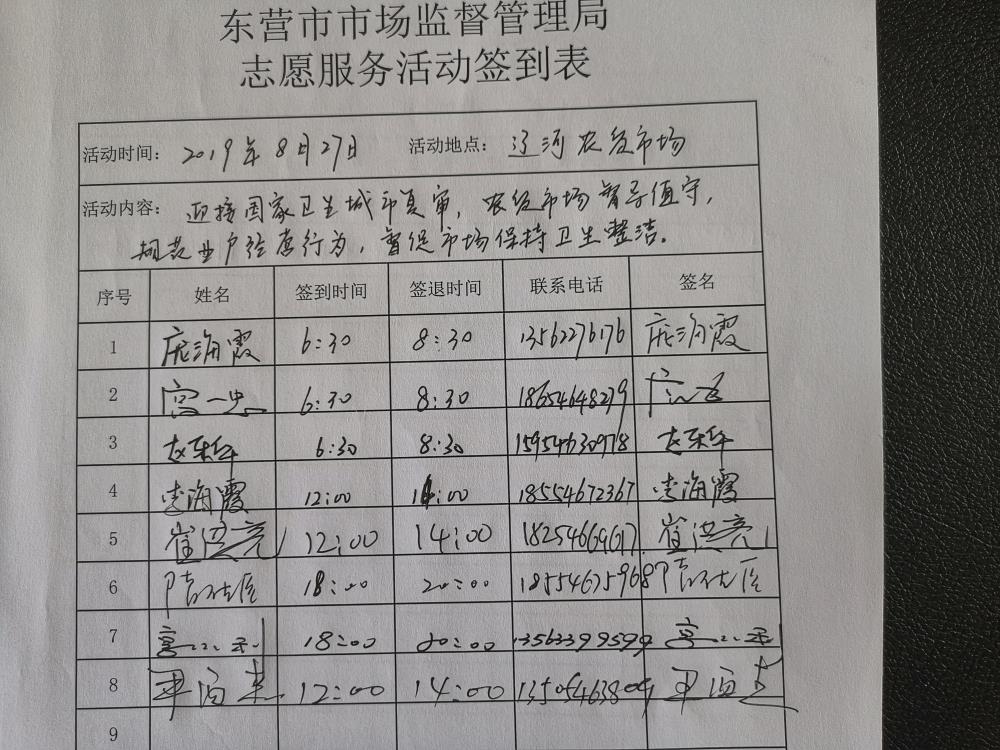 东营市市场监督管理局
志愿服务活动签到表
活动时间: 2019年8月27日 活动地点: 辽河农贸市场
活动内容: 迎接国家卫生城市复审, 农贸市场督导值守,
规范业户经营行为, 督促市场保持卫生整洁。
序号 姓名 签到时间 签退时间 联系电话 签名
1 庞海霞 6:30 8:30 13562276176 庞海霞
2 6:30 8:30 18654648279
3 6:30 8:30 15954630978
4 李海霞 12:00 14:00 18554672367 李海霞
5 崔洪亮 12:00 14:00 18254669617 崔洪亮
6 18:00 20:00 18554675968
7 18:00 20:00 13563399599
8 12:00 14:00
9